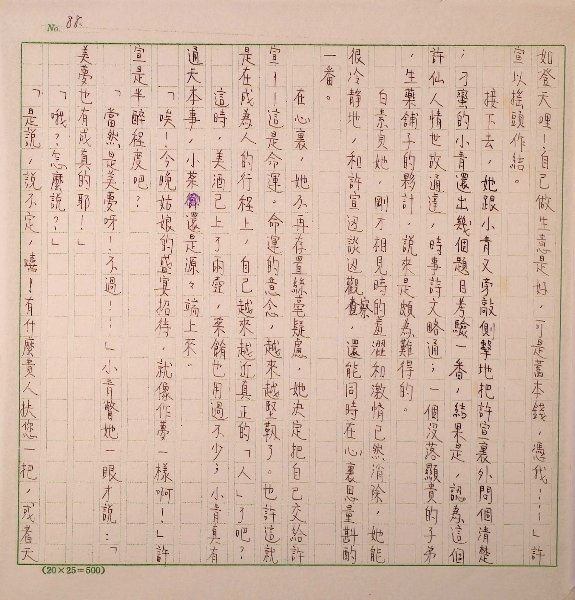 No. 88.
如登天哩!自己做生意是好,可是舊本錢,憑我⋯⋯」許
宣以搖頭作結。
接下去,她跟小青又旁敲側擊地把許宣裏外問個清楚
;刁蠻的小青還出幾個題目考驗一番,結果是,認為這個
許仙人情世故通達,時事詩文略通;一個沒落顯貴的子弟
,生藥舖子的夥計,說來是頗為難得的。
白素貞她,剛才相見時的羞澀和激情已然消除,她能
很冷靜地,和許宣邊談邊觀察,還能同時在心裏思量斟酌
一番。
在心裏,她不再存置絲毫疑慮,她決定把自己交給許
宣——這是命運。命運的意念,越來越堅靱了。也許這就
是在成為人的行程上,自己越來越近真正的「人」了吧?
這時,美酒已上了兩壺,菜餚也用過不少;小青真有
通天本事,小菜還是源々端上來。
「唉!今晚姑娘的盛宴招待,就像作夢一樣啊!」許
宣是半醉程度吧?
「當然是美夢呀!不過⋯⋯」小青瞥她一眼才說:「
美夢也有成真的耶!」
「哦?怎麼說?」
「是說,說不定,嘻!有什麼貴人扶您一把,或者天
(20×25=500)